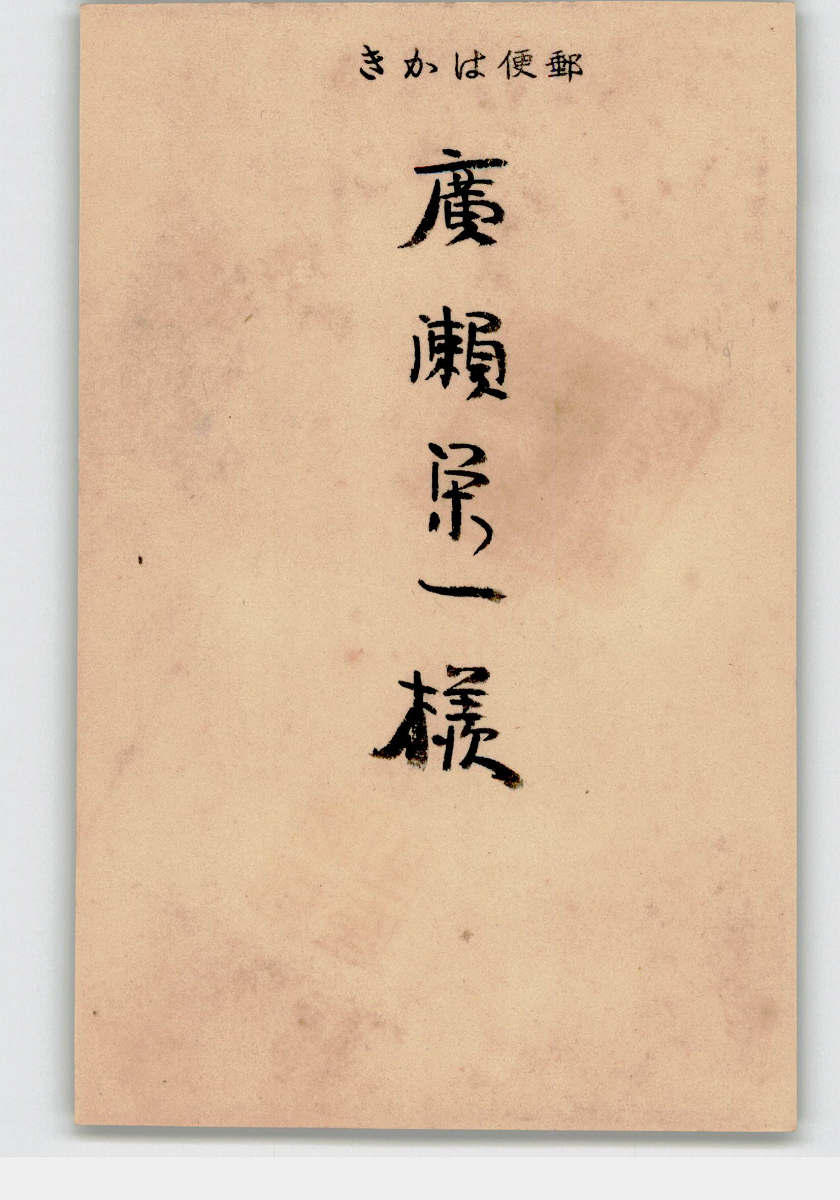 郵便はかき
廣瀬栄一様